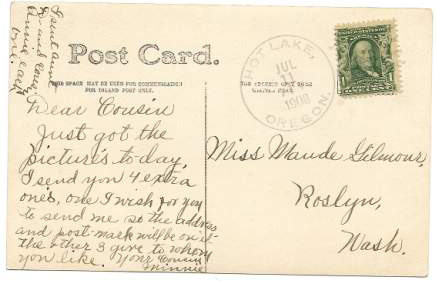 I sent Aunt
D. and Cousi
Annie each
one.
Post Card.
THIS SPACE MAY BE USED FOR CORRESPONDENCE
FOR INLAND POST ONLY.
THE ADDRESS ONLY HERE
HOT LAKE,
JUL
1908
OREGON.
1 1
Dear Cousin
Just got the
picture's to-day,
I send you 4 extra
one's, one I wish for you
to send me so the address
and post-mark will be on it
the other 3 give to whom
you like. Your Cousin
Minnie
Miss Maude Gilmour,
Roslyn,
Wash.